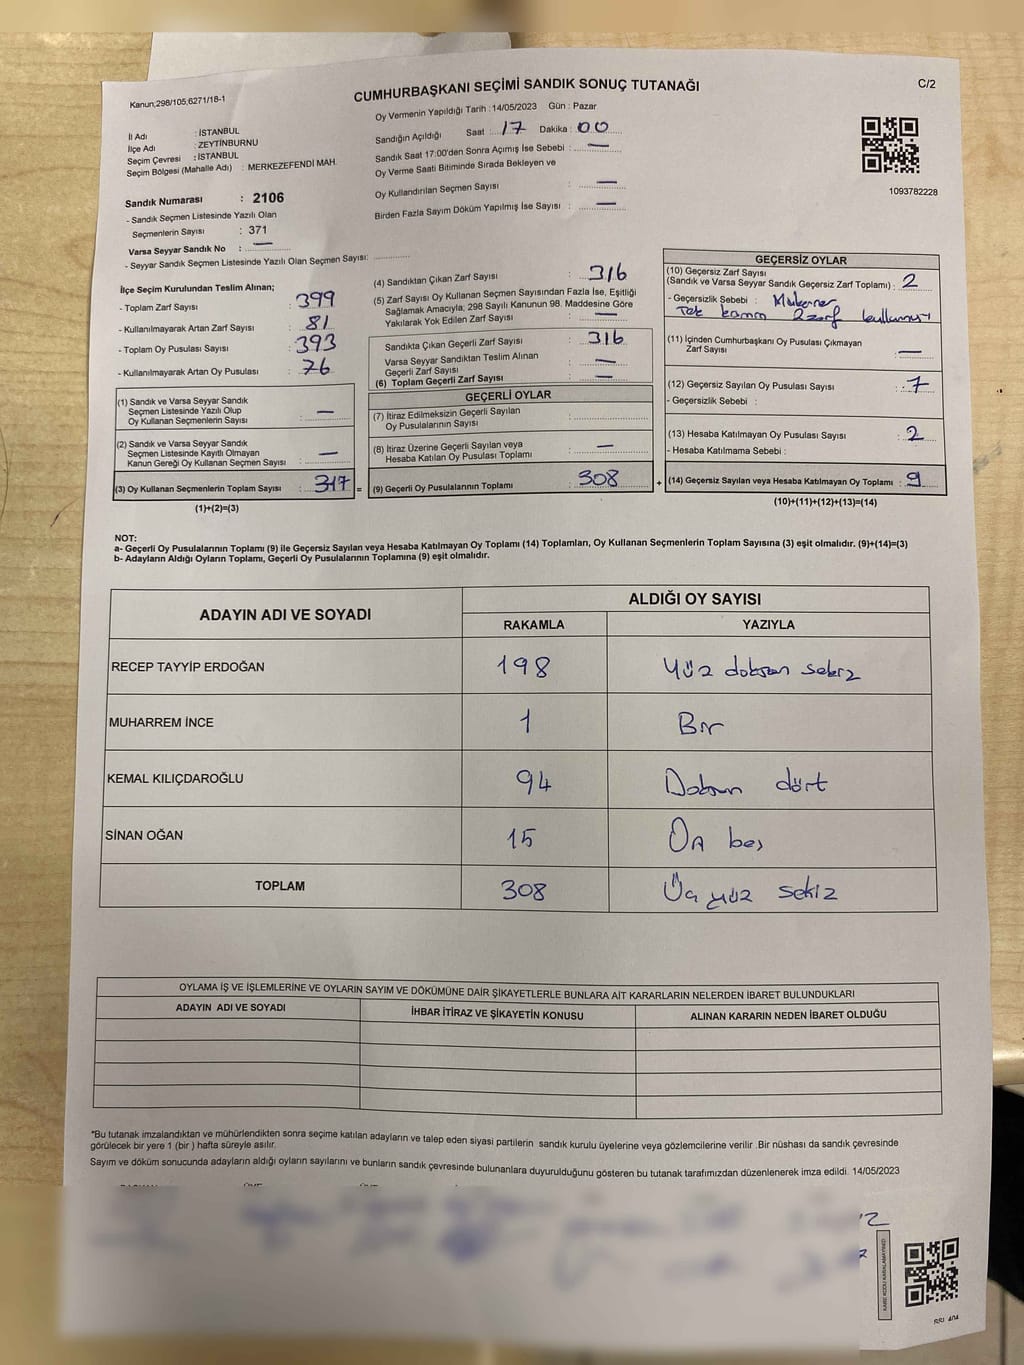 Kanun;298/105;6271/18-1
CUMHURBAŞKANI SEÇİMİ SANDIK SONUÇ TUTANAĞI
C/2
Oy Vermenin Yapıldığı Tarih : 14/05/2023 Gün : Pazar
İl Adı : İSTANBUL
İlçe Adı : ZEYTİNBURNU
Seçim Çevresi : İSTANBUL
Seçim Bölgesi (Mahalle Adı) : MERKEZEFENDİ MAH.
Sandığın Açıldığı Saat : 17 Dakika : 00
Sandık Saat 17:00'den Sonra Açımış İse Sebebi : —
Oy Verme Saati Bitiminde Sırada Bekleyen ve
Oy Kullandırılan Seçmen Sayısı : —
Birden Fazla Sayım Döküm Yapılmış İse Sayısı : —
1093782228
Sandık Numarası : 2106
- Sandık Seçmen Listesinde Yazılı Olan
Seçmenlerin Sayısı : 371
Varsa Seyyar Sandık No : —
- Seyyar Sandık Seçmen Listesinde Yazılı Olan Seçmen Sayısı:
İlçe Seçim Kurulundan Teslim Alınan;
- Toplam Zarf Sayısı : 399
- Kullanılmayarak Artan Zarf Sayısı : 81
- Toplam Oy Pusulası Sayısı : 393
- Kullanılmayarak Artan Oy Pusulası : 76
(1) Sandık ve Varsa Seyyar Sandık
Seçmen Listesinde Yazılı Olup
Oy Kullanan Seçmenlerin Sayısı : —
(2) Sandık ve Varsa Seyyar Sandık
Seçmen Listesinde Kayıtlı Olmayan
Kanun Gereği Oy Kullanan Seçmen Sayısı : —
(3) Oy Kullanan Seçmenlerin Toplam Sayısı : 317 =
(1)+(2)=(3)
(4) Sandıktan Çıkan Zarf Sayısı : 316
(5) Zarf Sayısı Oy Kullanan Seçmen Sayısından Fazla İse, Eşitliği
Sağlamak Amacıyla, 298 Sayılı Kanunun 98. Maddesine Göre
Yakılarak Yok Edilen Zarf Sayısı : —
Sandıkta Çıkan Geçerli Zarf Sayısı : 316
Varsa Seyyar Sandıktan Teslim Alınan
Geçerli Zarf Sayısı : —
(6) Toplam Geçerli Zarf Sayısı : —
GEÇERLİ OYLAR
(7) İtiraz Edilmeksizin Geçerli Sayılan
Oy Pusulalarının Sayısı :
(8) İtiraz Üzerine Geçerli Sayılan veya
Hesaba Katılan Oy Pusulası Toplamı : —
(9) Geçerli Oy Pusulalarının Toplamı : 308 +
GEÇERSİZ OYLAR
(10) Geçersiz Zarf Sayısı
(Sandık ve Varsa Seyyar Sandık Geçersiz Zarf Toplamı) : 2
- Geçersizlik Sebebi : Mükerrer
Tek 2 zarf
(11) İçinden Cumhurbaşkanı Oy Pusulası Çıkmayan
Zarf Sayısı : —
(12) Geçersiz Sayılan Oy Pusulası Sayısı : 7
- Geçersizlik Sebebi :
(13) Hesaba Katılmayan Oy Pusulası Sayısı : 2
- Hesaba Katılmama Sebebi :
(14) Geçersiz Sayılan veya Hesaba Katılmayan Oy Toplamı : 9
(10)+(11)+(12)+(13)=(14)
NOT:
a- Geçerli Oy Pusulalarının Toplamı (9) ile Geçersiz Sayılan veya Hesaba Katılmayan Oy Toplamı (14) Toplamları, Oy Kullanan Seçmenlerin Toplam Sayısına (3) eşit olmalıdır. (9)+(14)=(3)
b- Adayların Aldığı Oyların Toplamı, Geçerli Oy Pusulalarının Toplamına (9) eşit olmalıdır.
ADAYIN ADI VE SOYADI
ALDIĞI OY SAYISI
RAKAMLA YAZIYLA
RECEP TAYYİP ERDOĞAN 198 Yüz doksan sekiz
MUHARREM İNCE 1 Bir
KEMAL KILIÇDAROĞLU 94 Doksan dört
SİNAN OĞAN 15 On beş
TOPLAM 308 Üç yüz sekiz
OYLAMA İŞ VE İŞLEMLERİNE VE OYLARIN SAYIM VE DÖKÜMÜNE DAİR ŞİKAYETLERLE BUNLARA AİT KARARLARIN NELERDEN İBARET BULUNDUKLARI
ADAYIN ADI VE SOYADI İHBAR İTİRAZ VE ŞİKAYETİN KONUSU ALINAN KARARIN NEDEN İBARET OLDUĞU
*Bu tutanak imzalandıktan ve mühürlendikten sonra seçime katılan adayların ve talep eden siyasi partilerin sandık kurulu üyelerine veya gözlemcilerine verilir .Bir nüshası da sandık çevresinde
görülecek bir yere 1 (bir ) hafta süreyle asılır.
Sayım ve döküm sonucunda adayların aldığı oyların sayılarını ve bunların sandık çevresinde bulunanlara duyurulduğunu gösteren bu tutanak tarafımızdan düzenlenerek imza edildi. 14/05/2023
KARE KODU KARALAMAYINIZ!